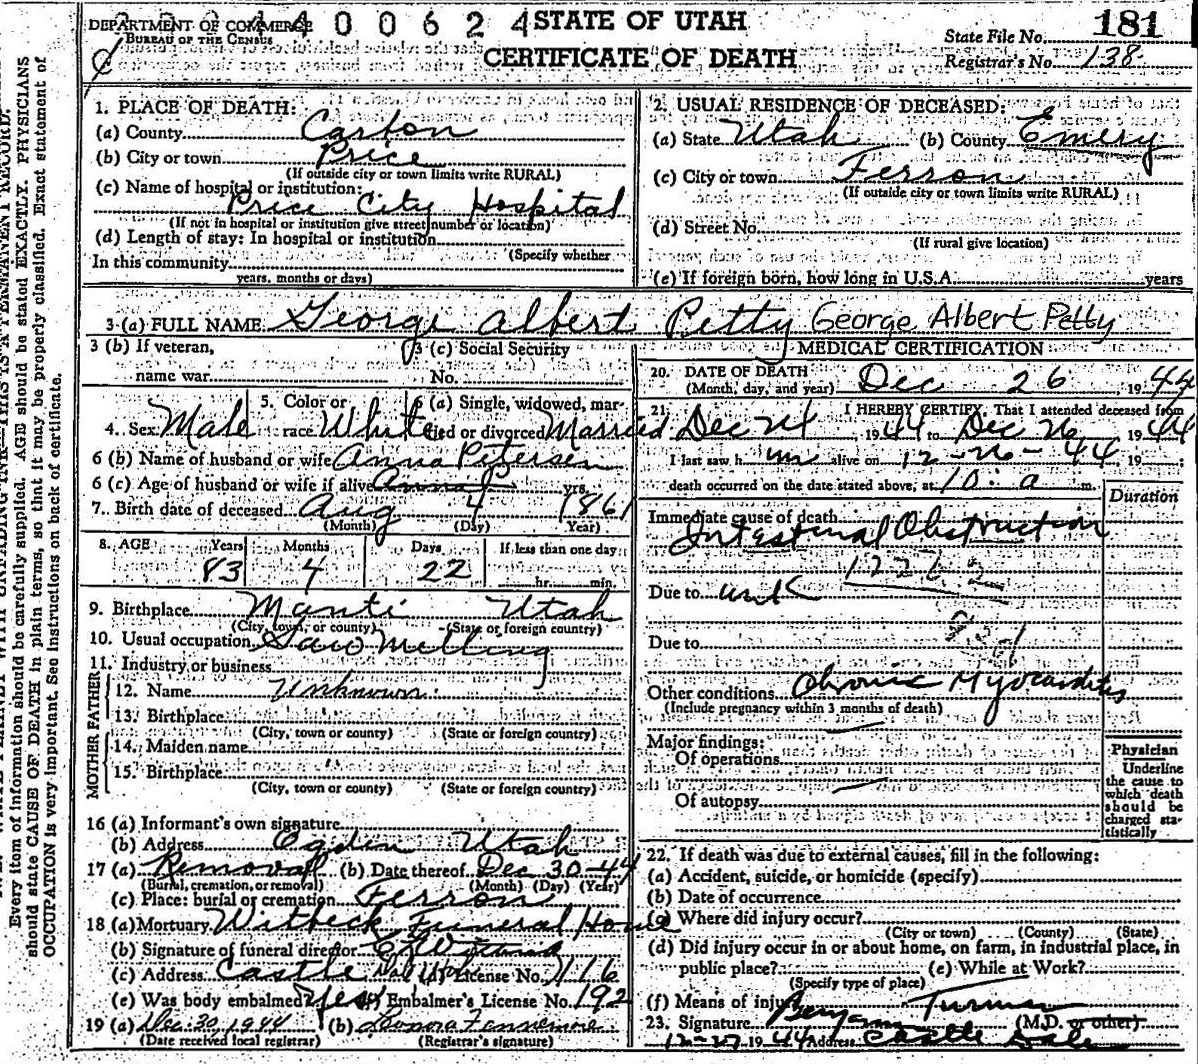 DEPARTMENT OF COMMERCE
BUREAU OF THE CENSUS
400624
STATE OF UTAH
CERTIFICATE OF DEATH
State File No. 181
Registrar's No. 138
1. PLACE OF DEATH:
(a) County Carbon
(b) City or town Price
(If outside city or town limits write RURAL)
(c) Name of hospital or institution:
Price City Hospital
(If not in hospital or institution give street number or location)
(d) Length of stay: In hospital or institution
(Specify whether
In this community
years, months or days)
2. USUAL RESIDENCE OF DECEASED:
(a) State Utah (b) County Emery
(c) City or town Ferron
(If outside city or town limits write RURAL)
(d) Street No.
(If rural give location)
(e) If foreign born, how long in U.S.A. years
3 (a) FULL NAME George Albert Petty George Albert Petty
3 (b) If veteran,
name war
3 (c) Social Security
No.
4. Sex Male
5. Color or
race White
6 (a) Single, widowed, mar-
ried or divorced Married
6 (b) Name of husband or wife Anna Petersen
6 (c) Age of husband or wife if alive yrs.
7. Birth date of deceased Aug 4 1861
(Month) (Day) Year)
8. AGE Years Months Days If less than one day
83 4 22 hr. min.
9. Birthplace Manti Utah
(City, town, or county) (State or foreign country)
10. Usual occupation Saw Melling
11. Industry or business
FATHER
12. Name Unknown
13. Birthplace
(City, town or county) (State or foreign country)
MOTHER
14. Maiden name "
15. Birthplace "
(City, town or county) (State or foreign country)
16 (a) Informant's own signature
(b) Address Ogden Utah
17 (a) Removal (b) Date thereof Dec 30-44
(Burial, cremation, or removal) (Month) (Day) (Year)
(c) Place: burial or cremation Ferron
18 (a) Mortuary Witbeck Funeral Home
(b) Signature of funeral director
(c) Address Castle Dale License No. 116
(e) Was body embalmed? Yes Embalmer's License No. 192
19 (a) Dec. 30, 1944 (b) Leonora Fennemore
(Date received local registrar) (Registrar's signature)
MEDICAL CERTIFICATION
20. DATE OF DEATH
(Month, day, and year) Dec 26 1944
21. I HEREBY CERTIFY, That I attended deceased from
Dec 24 1944 to Dec 26 1944
I last saw h im alive on 12-26-44, 19
death occurred on the date stated above, at 10: a m.
Duration
Immediate cause of death
Intestinal Obstruction
Due to unk
Due to
Other conditions Chronic Myocarditis
(Include pregnancy within 3 months of death)
Major findings:
Of operations
Of autopsy
Physician
Underline
the cause to
which death
should be
charged sta-
tistically
22. If death was due to external causes, fill in the following:
(a) Accident, suicide, or homicide (specify)
(b) Date of occurrence
(c) Where did injury occur?
(City or town) (County) (State)
(d) Did injury occur in or about home, on farm, in industrial place, in
public place? (e) While at Work?
(Specify type of place)
(f) Means of injury
23. Signature Benjamin Turman (M.D. or other)
12-27 1944 Address Castle Dale
Every item of information should be carefully supplied. AGE should be stated EXACTLY. PHYSICIANS
should state CAUSE OF DEATH in plain terms, so that it may be properly classified. Exact statement of
OCCUPATION is very important. See instructions on back of certificate.